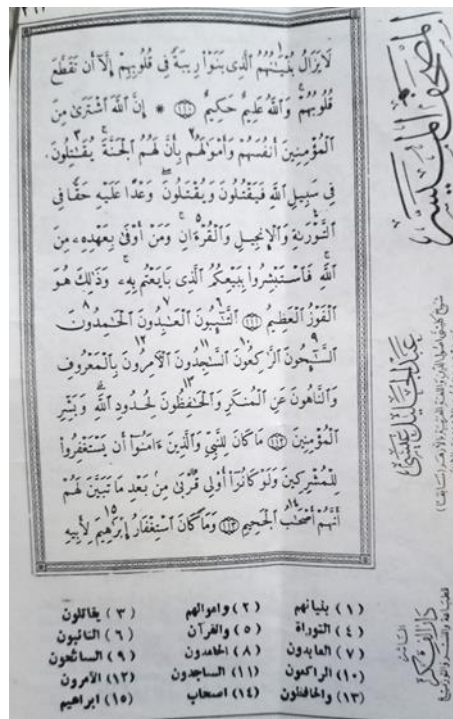 لَا يَزَالُ بُنْيَـٰنُهُمُ ٱلَّذِى بَنَوْا۟ رِيبَةً فِى قُلُوبِهِمْ إِلَّآ أَن تَقَطَّعَ
قُلُوبُهُمْ وَٱللَّهُ عَلِيمٌ حَكِيمٌ ﴿١١٠﴾ * إِنَّ ٱللَّهَ ٱشْتَرَىٰ مِنَ
ٱلْمُؤْمِنِينَ أَنفُسَهُمْ وَأَمْوَٰلَهُم بِأَنَّ لَهُمُ ٱلْجَنَّةَ يُقَـٰتِلُونَ
فِى سَبِيلِ ٱللَّهِ فَيَقْتُلُونَ وَيُقْتَلُونَ وَعْدًا عَلَيْهِ حَقًّا فِى
ٱلتَّوْرَىٰةِ وَٱلْإِنجِيلِ وَٱلْقُرْءَانِ وَمَنْ أَوْفَىٰ بِعَهْدِهِۦ مِنَ
ٱللَّهِ فَٱسْتَبْشِرُوا۟ بِبَيْعِكُمُ ٱلَّذِى بَايَعْتُم بِهِۦ وَذَٰلِكَ هُوَ
ٱلْفَوْزُ ٱلْعَظِيمُ ﴿١١١﴾ ٱلتَّـٰٓئِبُونَ ٱلْعَـٰبِدُونَ ٱلْحَـٰمِدُونَ
ٱلسَّـٰٓئِحُونَ ٱلرَّٰكِعُونَ ٱلسَّـٰجِدُونَ ٱلْـَٔامِرُونَ بِٱلْمَعْرُوفِ
وَٱلنَّاهُونَ عَنِ ٱلْمُنكَرِ وَٱلْحَـٰفِظُونَ لِحُدُودِ ٱللَّهِ وَبَشِّرِ
ٱلْمُؤْمِنِينَ ﴿١١٢﴾ مَا كَانَ لِلنَّبِىِّ وَٱلَّذِينَ ءَامَنُوٓا۟ أَن يَسْتَغْفِرُوا۟
لِلْمُشْرِكِينَ وَلَوْ كَانُوٓا۟ أُو۟لِى قُرْبَىٰ مِنۢ بَعْدِ مَا تَبَيَّنَ لَهُمْ
أَنَّهُمْ أَصْحَـٰبُ ٱلْجَحِيمِ ﴿١١٣﴾ وَمَا كَانَ ٱسْتِغْفَارُ إِبْرَٰهِيمَ لِأَبِيهِ
(١) بنيانهم (٢) واموالهم (٣) يقاتلون
(٤) التوراة (٥) والقرآن (٦) التائبون
(٧) العابدون (٨) الحامدون (٩) السائحون
(١٠) الراكعون (١١) الساجدون (١٢) الآمرون
(١٣) والحافظون (١٤) اصحاب (١٥) ابراهيم
المصحف الميسر
عبد الجليل عيسى
الناشر
دار الفكر